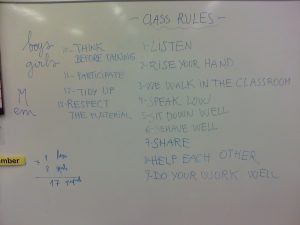 - CLASS RULES -
boys
girls
M
em
10- THINK
BEFORE TALKING
11- PARTICIPATE
12- TIDY UP
13- RESPECT
THE MATERIAL
1- LISTEN
2- RISE YOUR HAND
3- WE WALK IN THE CLASSROOM
4- SPEAK LOW
5- SIT DOWN WELL
6- BEHAVE WELL
7- SHARE
8- HELP EACH OTHER
9- DO YOUR WORK WELL
mber
9 boys
8 girls
17